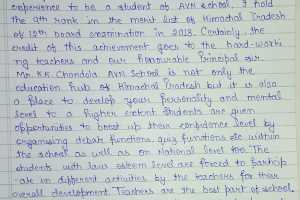 experience to be a student of AVN school. I hold
the 9th rank in the merit list of Himachal Pradesh
of 12th board examination in 2018. Certainly, the
credit of this achievement goes to the hard-work
ing teachers and our honourable Principal sir
Mr. K.K. Chandola. AVN School is not only the
education hub of Himachal Pradesh but it is also
a place to develop your personality and mental
level to a higher extent. Students are given
opportunities to boost up their confidence level by
organising debate functions, quiz functions etc within
the school as well as on National level too. The
students with low esteem level are forced to particip
ate in different activities by the teachers for their
overall development. Teachers are the best part of school.